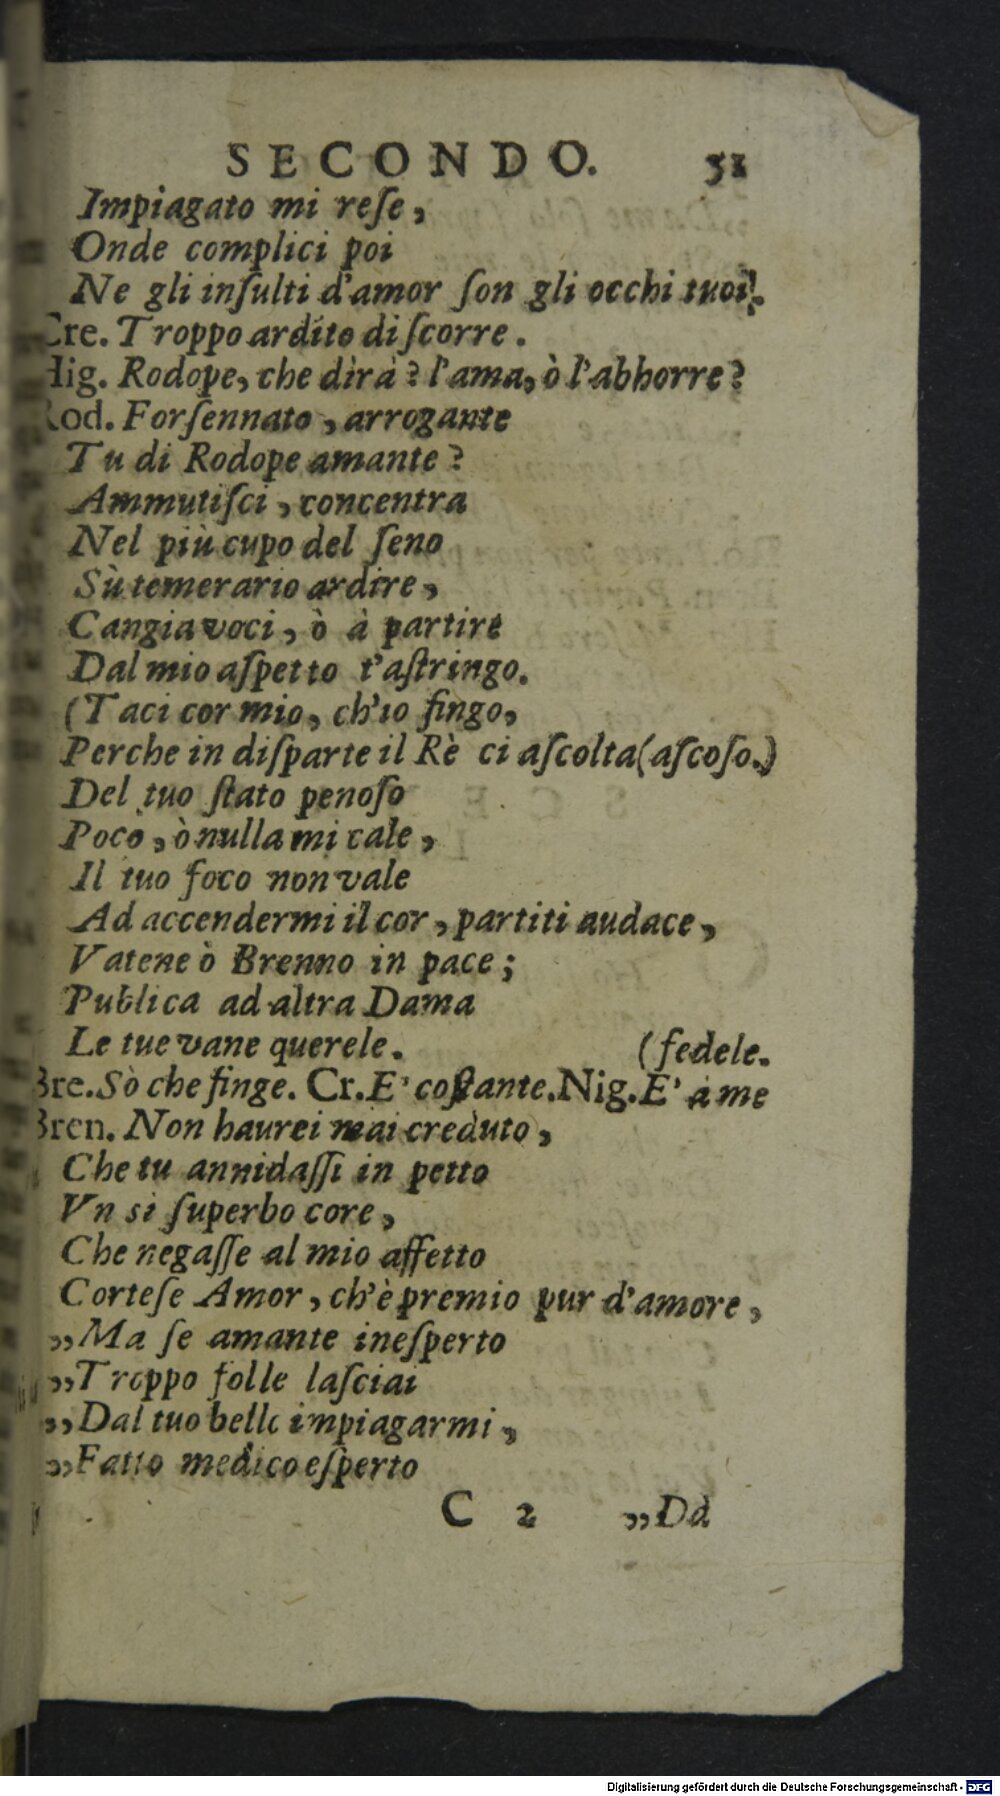 SECONDO. 51
Impiagato mi reſe,
Onde complici poi
Ne gli inſulti d'amor ſon gli occhi tuoi!.
Cre. Troppo ardito diſcorre.
Nig. Rodope, che dirà? l'ama, ò l'abhorre?
Rod. Forſennato, arrogante
Tu di Rodope amante?
Ammutiſci, concentra
Nel più cupo del ſeno
Sù temerario ardire,
Cangia voci, ò à partire
Dal mio aſpetto t'aſtringo.
(Taci cor mio, ch'io fingo,
Perche in diſparte il Rè ci aſcolta(aſcoſo.)
Del tuo ſtato penoſo
Poco, ò nulla mi cale,
Il tuo foco non vale
Ad accendermi il cor, partiti audace,
Vatene ò Brenno in pace;
Publica ad altra Dama
Le tue vane querele. (fedele.
Bre. Sò che finge. Cr. E' coſtante. Nig. E' à me
Bren. Non haurei mai creduto,
Che tu annidaſſi in petto
Vn si ſuperbo core,
Che negaſſe al mio affetto
Corteſe Amor, ch'è premio pur d'amore,
„Ma ſe amante ineſperto
„Troppo folle laſciai
„Dal tuo bello impiagarmi,
„Fatto medico eſperto
C 2 „Da
Digitalisierung gefördert durch die Deutsche Forschungsgemeinschaft - DFG